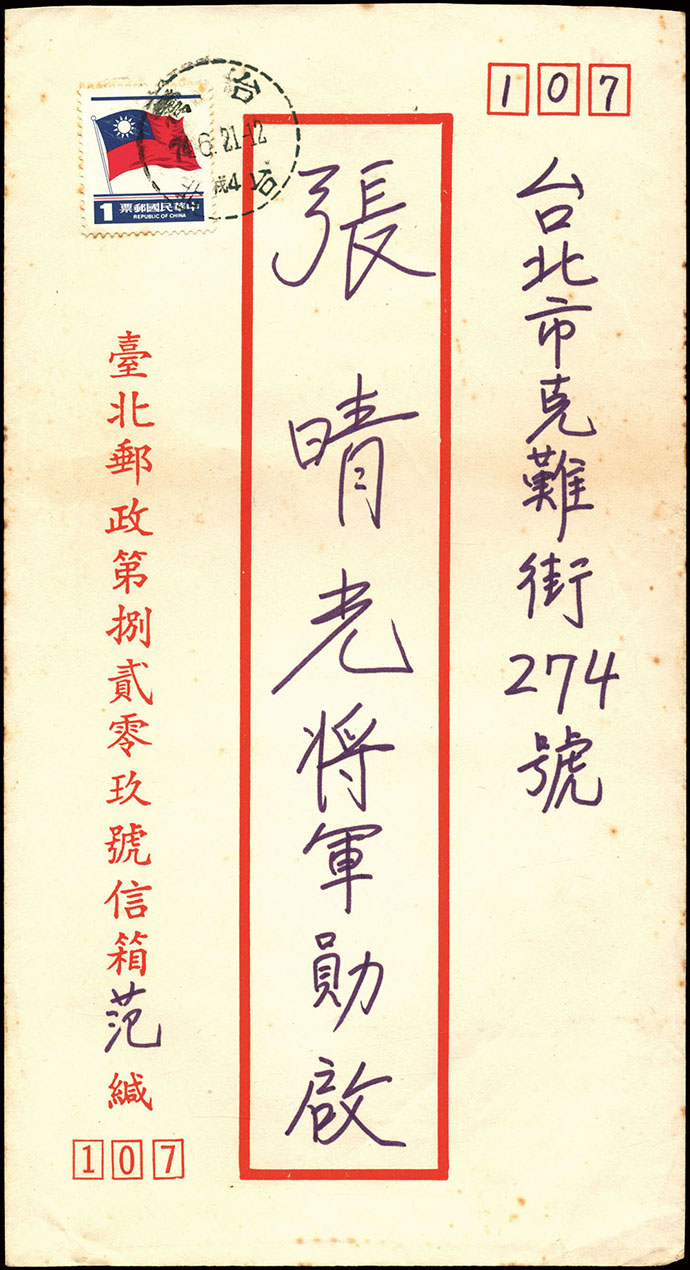 107
台北市克難街274號
張晴光將軍勛啟
1 中華民國郵票
REPUBLIC OF CHINA
台
6.21-12
臺北郵政第捌貳零玖號信箱范緘
107